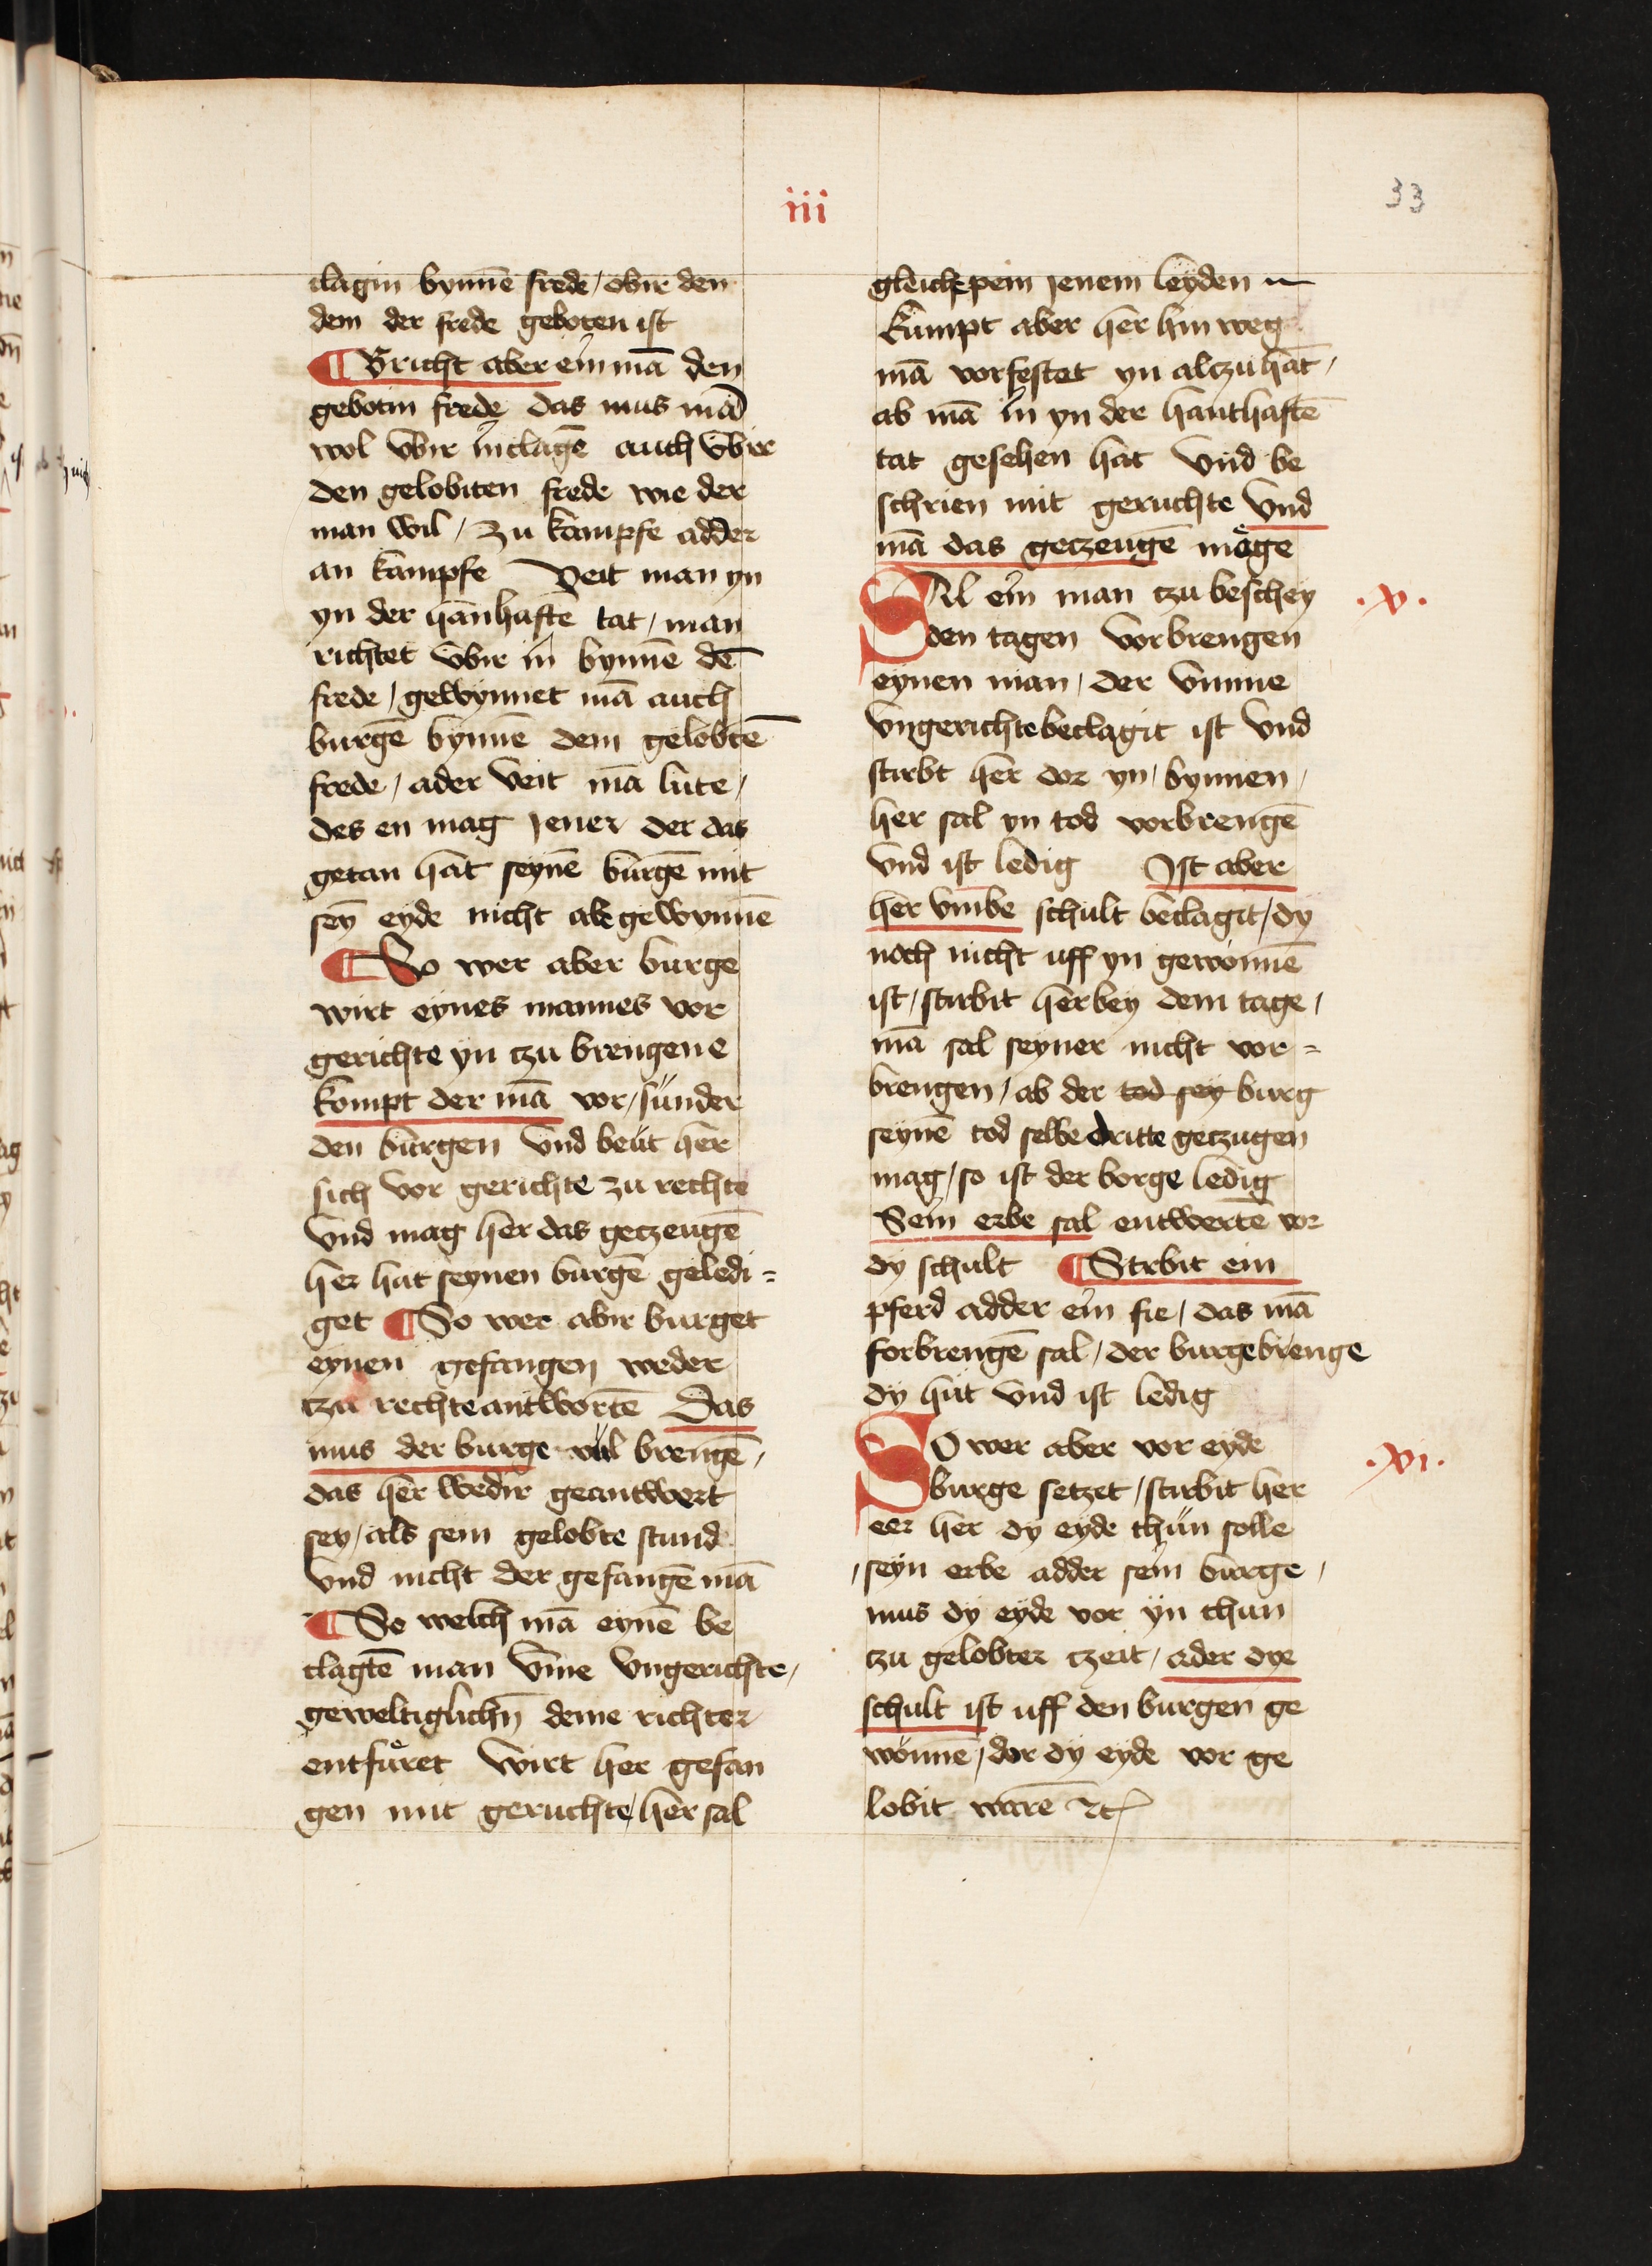 iii
33
clagin bynnē frede / obir den
dem der frede geboten ist
¶ Bricht aber ein mā den
gebotin frede das mus mā
wol vbir in clagē auch vbir
den gelobiten frede wie der
man wil / zu kampfe adder
an kampfe Veit man yn
yn der hanhaftē tat / man
richtet vbir in bynnē dē
frede / gewynnet mā auch
burgē bynnē dem gelobtē
frede / ader veit mā lute /
des en mag jener der das
getan hat seynē burgē mit
seȳ eyde nicht abegewynnē
¶ So wer aber burge
wirt eynes mannes vor
gerichte yn tzu brengene
kompt der mā vor / sunder
den burgen vnd beut her
sich vor gerichte zu rechte
vnd mag her das getzeugē
her hat seynen burgē geledi =
get ¶ So wer abir burget
eynen gefangen weder
tzu rechte antwortē Das
mus der burge vul brengē /
das her wedir geantwert
sey / als sein gelobte stund
vnd nicht der gefangē mā
¶ So welch mā eynē be
clagtē man vme vngerichte /
geweltiglichn̄ deme richter
entfuͦret wirt her gefan
gen mit geruchte / her sal
gleiche pein jenem leyden
kumpt aber her hin weg
mā vorfestet yn altzuhāt /
ab mā in yn der hanthaftē
tat gesehen hat vnd be
schrien mit geruchte vnd
mā das getzeugē moͤge
SAl ein man tzu beschey
.v.
den tagen vorbrengen
eynen man / der vmme
vngerichte beclagit ist vnd
stirbt her dor yn / bynnen /
her sal yn tod vorbrengē
vnd ist ledig Ist aber
her vmbe schult beclagit / dy
noch nicht uff yn gewonnē
ist / stirbit her bey dem tage /
mā sal seyner nicht vor =
brengen / ab der tod sey burg
seynē tod selbe dritte getzugen
mag / so ist der borge ledig
Sein erbe sal entwertē vor
dy schult ¶ Strbit ein
pferd adder ein fie / das mā
forbrengē sal / der burge brenge
dy hut vnd ist ledig
SO wer aber vor eyde
.vi.
burge setzet / stirbit her
eer her dy eyde thun solle
/ seyn erbe adder sein burge /
mus dy eyde vor yn thun
tzu gelobter tzeit / ader dye
schult ist uff den burgen ge
wonnē / dor dy eyde vor ge
lobit warē ꝛc